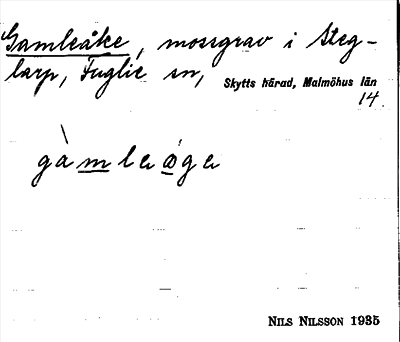 Gamleåke, mossgrav i Steg-
larp, Fuglie sn,
Skytts härad, Malmöhus län
14.
gàmlaåga
NILS NILSSON 1935